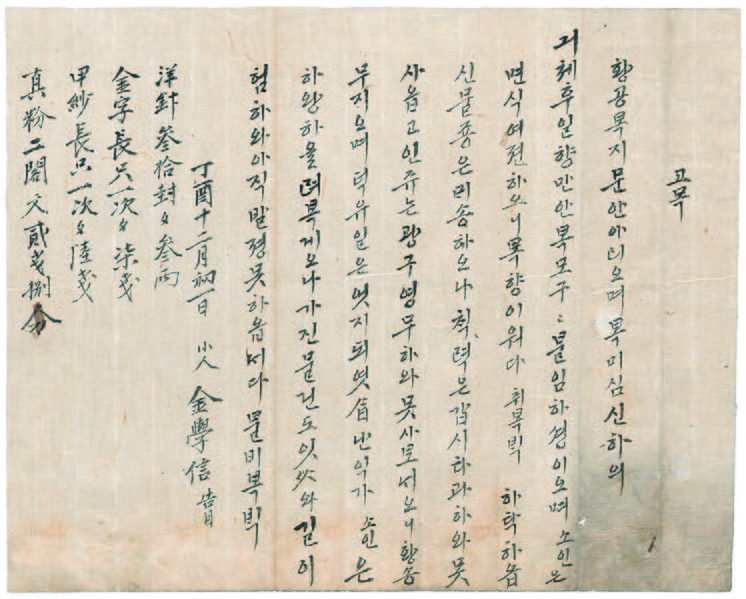 고목
황공복지문안아리오며 복미심신하의
긔체후일향만안복모구〻 물임하셩이오며 소인은
면식여젼하오니 복향이워다 취복븩 하탁하옵
신물죵은 리송하오나 척력은 갑시하과하와 못
사옵고 인쥬는 광구영무하와 못사보서오니 황송
무지오며 덕유일은 엇지되엿 난익가 소인은
하왕하올려 복계오나 가진물건도 잇 와 길이
험하와 아직 발졍못하옵 다 물비복븩
丁酉十二月初一日 小人 金學信 告目
洋針叁拾封々叁兩
金字長只一次々柒戔
甲紗長只一次々陸戔
真粉二閣文貳戔捌分